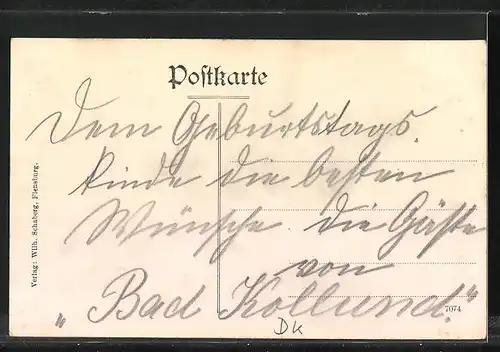 Postkarte
Dem Geburtstags
kinde die besten
Wünsche. die Gäste
von
„Bad Kollund."
Verlag: Wilh. Schaberg, Flensburg.
7074
DK